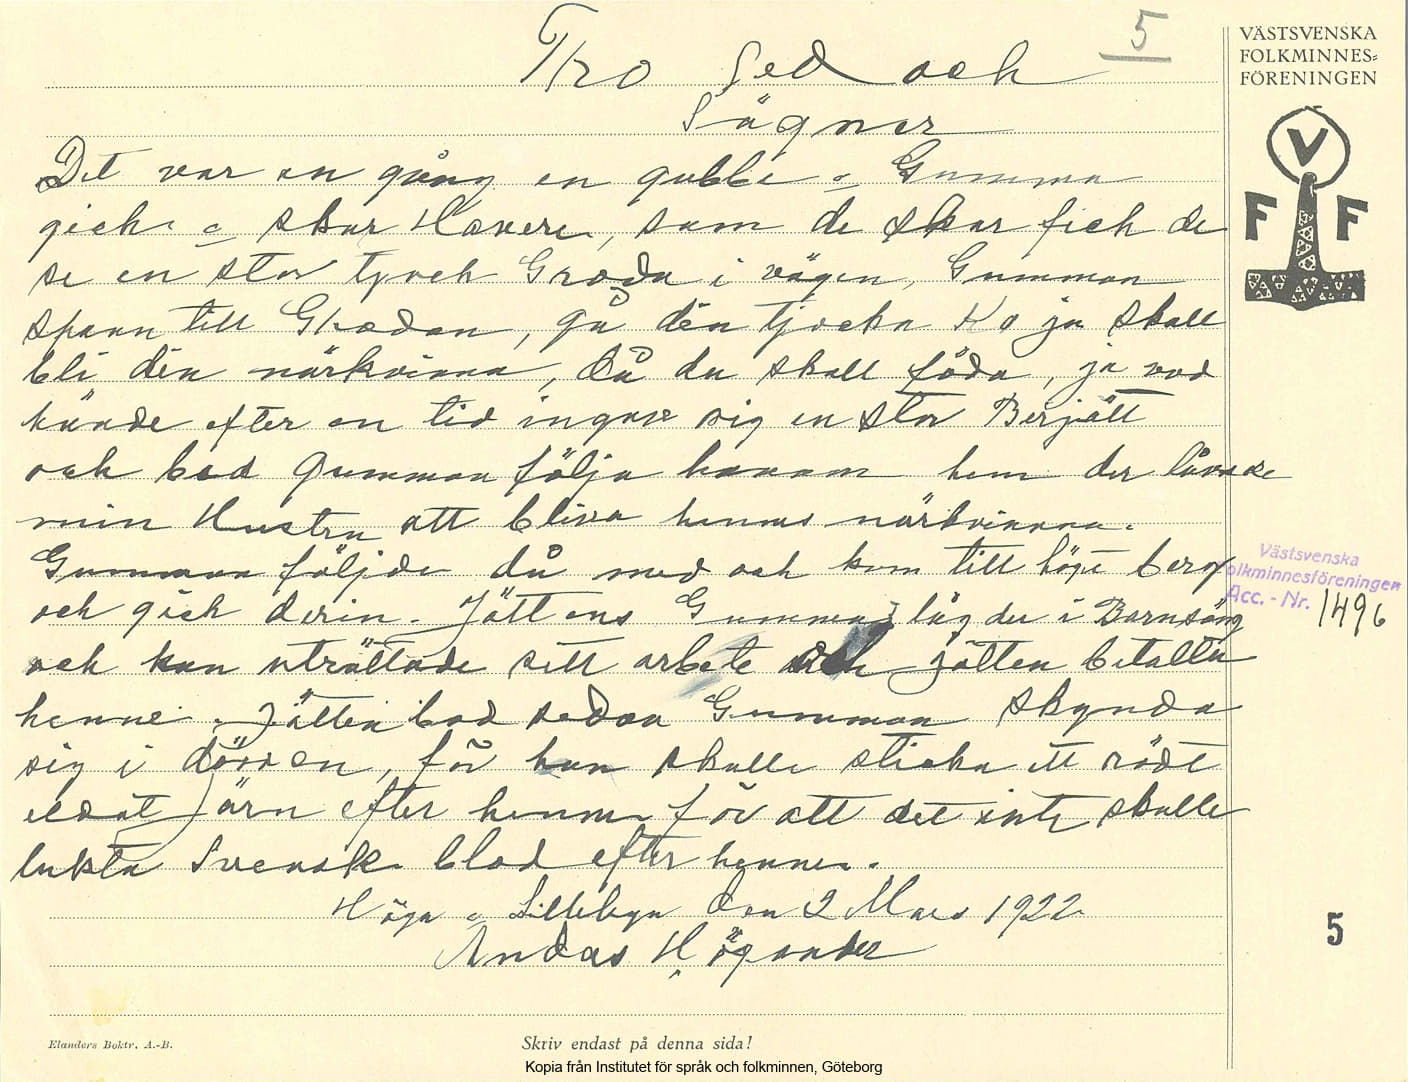 5
Tro Sed och
Sägner
VÄSTSVENSKA
FOLKMINNES=
FÖRENINGEN
V
F F
Det var en gång en gubbe o Gumma
gick o skar Havere, som de skar fick de
se en stor tjock Groda i vägen, Gumman
sa till Grodan, gå din tjocka Ko ja skall
bli din närkvinna, då du skall föda, ja vad
hände efter en tid ingav sig en stor Berjätt
och bad Gumman följa honom hem der
min Hustru att bliva hennes närkvinna.
Gumman följde då med och kom till höge berg
och gick derin. Jättens Gumma låg der i Barnsäng
och hon uträttade sitt arbete och jätten betalte
henne. Jätten bad sedan Gumman skynda
sig i dörren, för han skulle sticka ett rödt
eldat Järn efter henne för att det inte skulle
lukta Svensk blod efter henne.
Höga o Lillebyn den 2 Mars 1922
Andas Högander
Västsvenska
Folkminnesföreningen
Acc. - Nr. 1496
5
Elanders Boktr. A.-B.
Skriv endast på denna sida!
Kopia från Institutet för språk och folkminnen, Göteborg